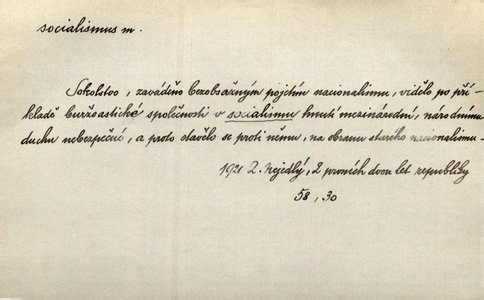 socialismus m.
Sokolstvo, zaváděno bezobsažným pojetím nacionalismu, vidělo po pří-
kladě buržoastické společnosti v socialismu hnutí mezinárodní, národnímu
duchu nebezpečné, a proto stavělo se proti němu, na obranu starého nacionalismu.
1921 Z. Nejedlý, Z prvních dvou let republiky
58, 30